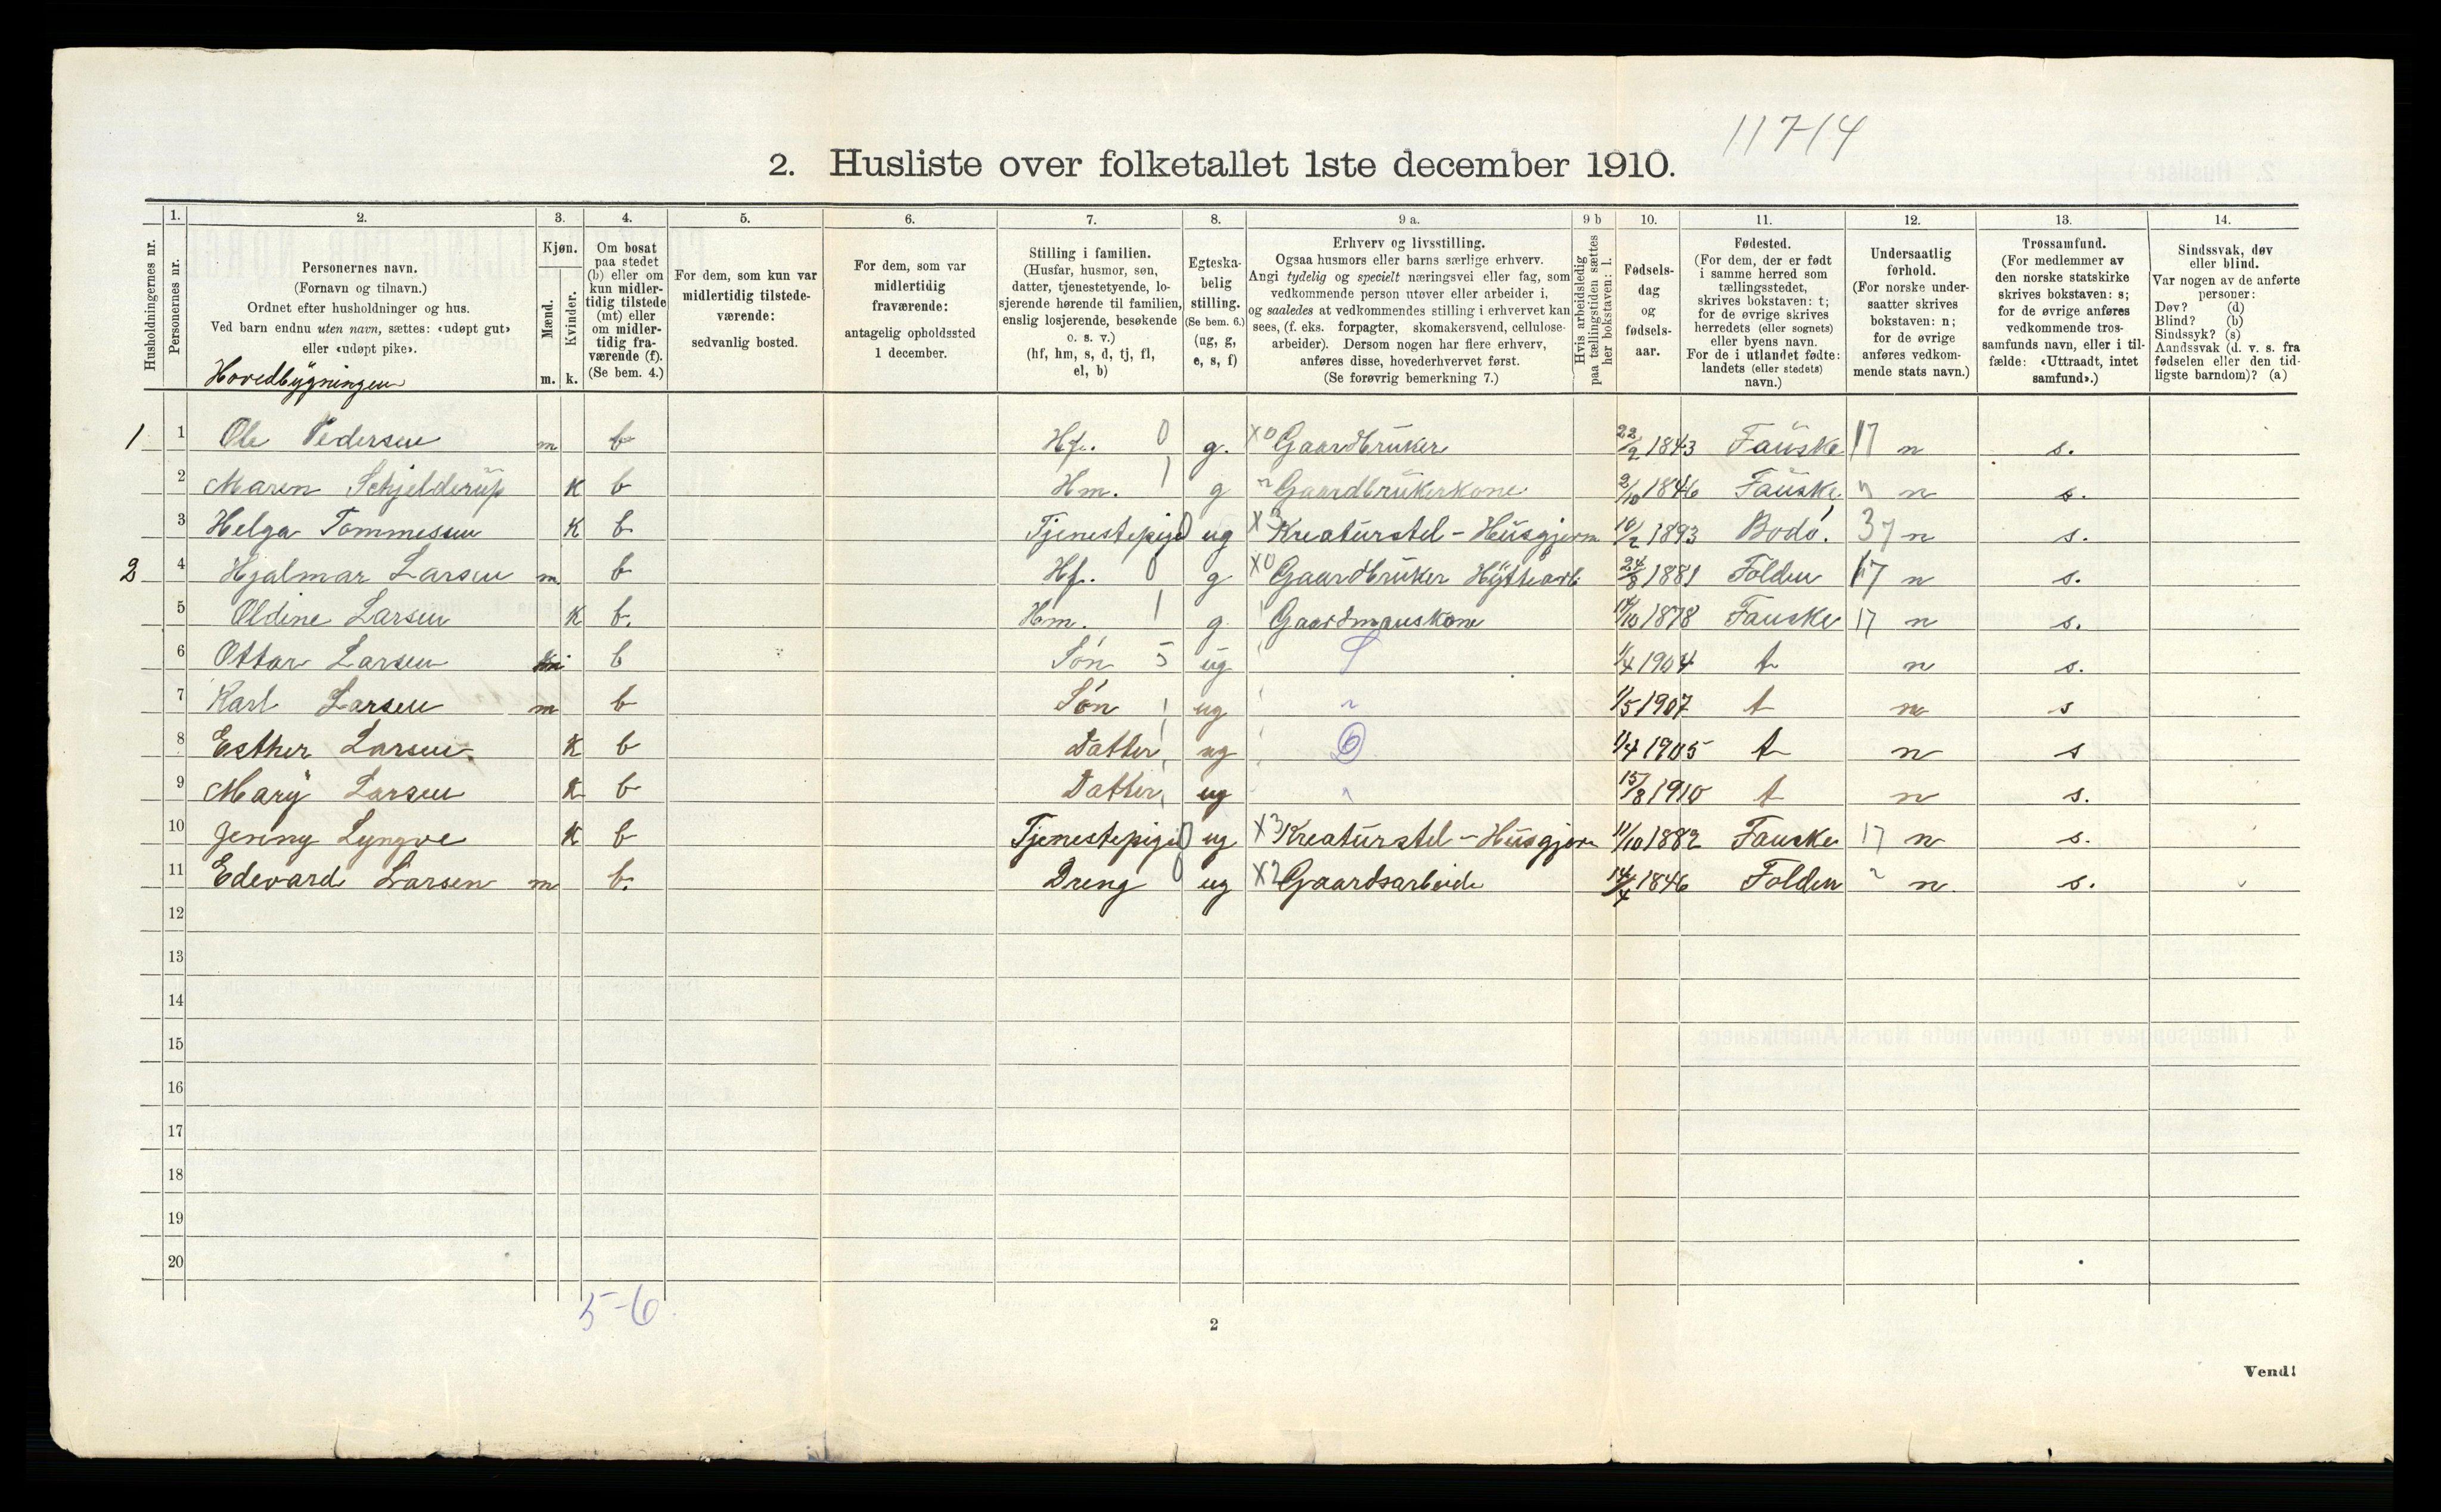 11714
2. Husliste over folketallet 1ste december 1910.
Husholdningernes nr.
1.
Personernes nr.
2.
Personernes navn.
(Fornavn og tilnavn.)
Ordnet efter husholdninger og hus.
Ved barn endnu uten navn, sættes: «udøpt gut»
eller «udøpt pike».
Hovedbygningen
3.
Kjøn.
Mænd.
Kvinder.
m. k.
4.
Om bosat
paa stedet
(b) eller om
kun midler-
tidig tilstede
(mt) eller
om midler-
tidig fra-
værende (f).
(Se bem. 4.)
5.
For dem, som kun var
midlertidig tilstede-
værende:
sedvanlig bosted.
6.
For dem, som var
midlertidig
fraværende:
antagelig opholdssted
1 december.
7.
Stilling i familien.
(Husfar, husmor, søn,
datter, tjenestetyende, lo-
sjerende hørende til familien,
enslig losjerende, besøkende
o. s. v.)
(hf, hm, s, d, tj, fl,
el, b)
8.
Egteska-
belig
stilling.
(Se bem. 6.)
(ug, g,
e, s, f)
9 a.
Erhverv og livsstilling.
Ogsaa husmors eller barns særlige erhverv.
Angi tydelig og specielt næringsvei eller fag, som
vedkommende person utøver eller arbeider i,
og saaledes at vedkommendes stilling i erhvervet kan
sees, (f. eks. forpagter, skomakersvend, cellulose-
arbeider). Dersom nogen har flere erhverv,
anføres disse, hovederhvervet først.
(Se forøvrig bemerkning 7.)
9 b
Hvis arbeidsledig
paa tællingstiden sættes
her bokstaven: l.
10.
Fødsels-
dag
og
fødsels-
aar.
11.
Fødested.
(For dem, der er født
i samme herred som
tællingsstedet,
skrives bokstaven: t;
for de øvrige skrives
herredets (eller sognets)
eller byens navn.
For de i utlandet fødte:
landets (eller stedets)
navn.)
12.
Undersaatlig
forhold.
(For norske under-
saatter skrives
bokstaven: n;
for de øvrige
anføres vedkom-
mende stats navn.)
13.
Trossamfund.
(For medlemmer av
den norske statskirke
skrives bokstaven: s;
for de øvrige anføres
vedkommende tros-
samfunds navn, eller i til-
fælde: «Uttraadt, intet
samfund».)
14.
Sindssvak, døv
eller blind.
Var nogen av de anførte
personer:
Døv? (d)
Blind? (b)
Sindssyk? (s)
Aandssvak (d. v. s. fra
fødselen eller den tid-
ligste barndom)? (a)
1 1 Ole Pedersen m b Hf. 0 g. X0 Gaardbruker 22/2 1843 Fauske 17 n s.
2 Maren Schjelderup K b Hm. 1 g " Gaardbrukerkone 2/10 1846 Fauske " n s.
3 Helga Tommesen K b Tjenestepige 0 ug X3 Kreaturstel - Husgjern 10/2 1893 Bodó. 37 n s.
2 4 Hjalmar Larsen m b Hf. 0 g X0 Gaardbruker Hytthearb. 24/8 1881 Folden 17 n s.
5 Oldine Larsen K b. Hm. 1 g Gaardmanskone 14/10 1878 Fauske 17 n s.
6 Ottar Larsen m b Són 5 ug S 1/4 1904 t n s.
7 Karl Larsen m b Són 1 ug " 1/5 1907 t n s
8 Esther Larsen K b Datter ug D 1/4 1905 t n s
9 Mary Larsen K b Datter ug " 15/8 1910 t n s.
10 Jenny Lyngve K b Tjenestepige 0 ug X3 Kreaturstel - Husgjern 11/10 1882 Fauske 17 n s.
11 Edevard Larsen m b. Dreng ug X2 Gaardsarbeide 14/4 1846 Folden " n s.
12
13
14
15
16
17
18
19
20
5-6.
2
Vend!